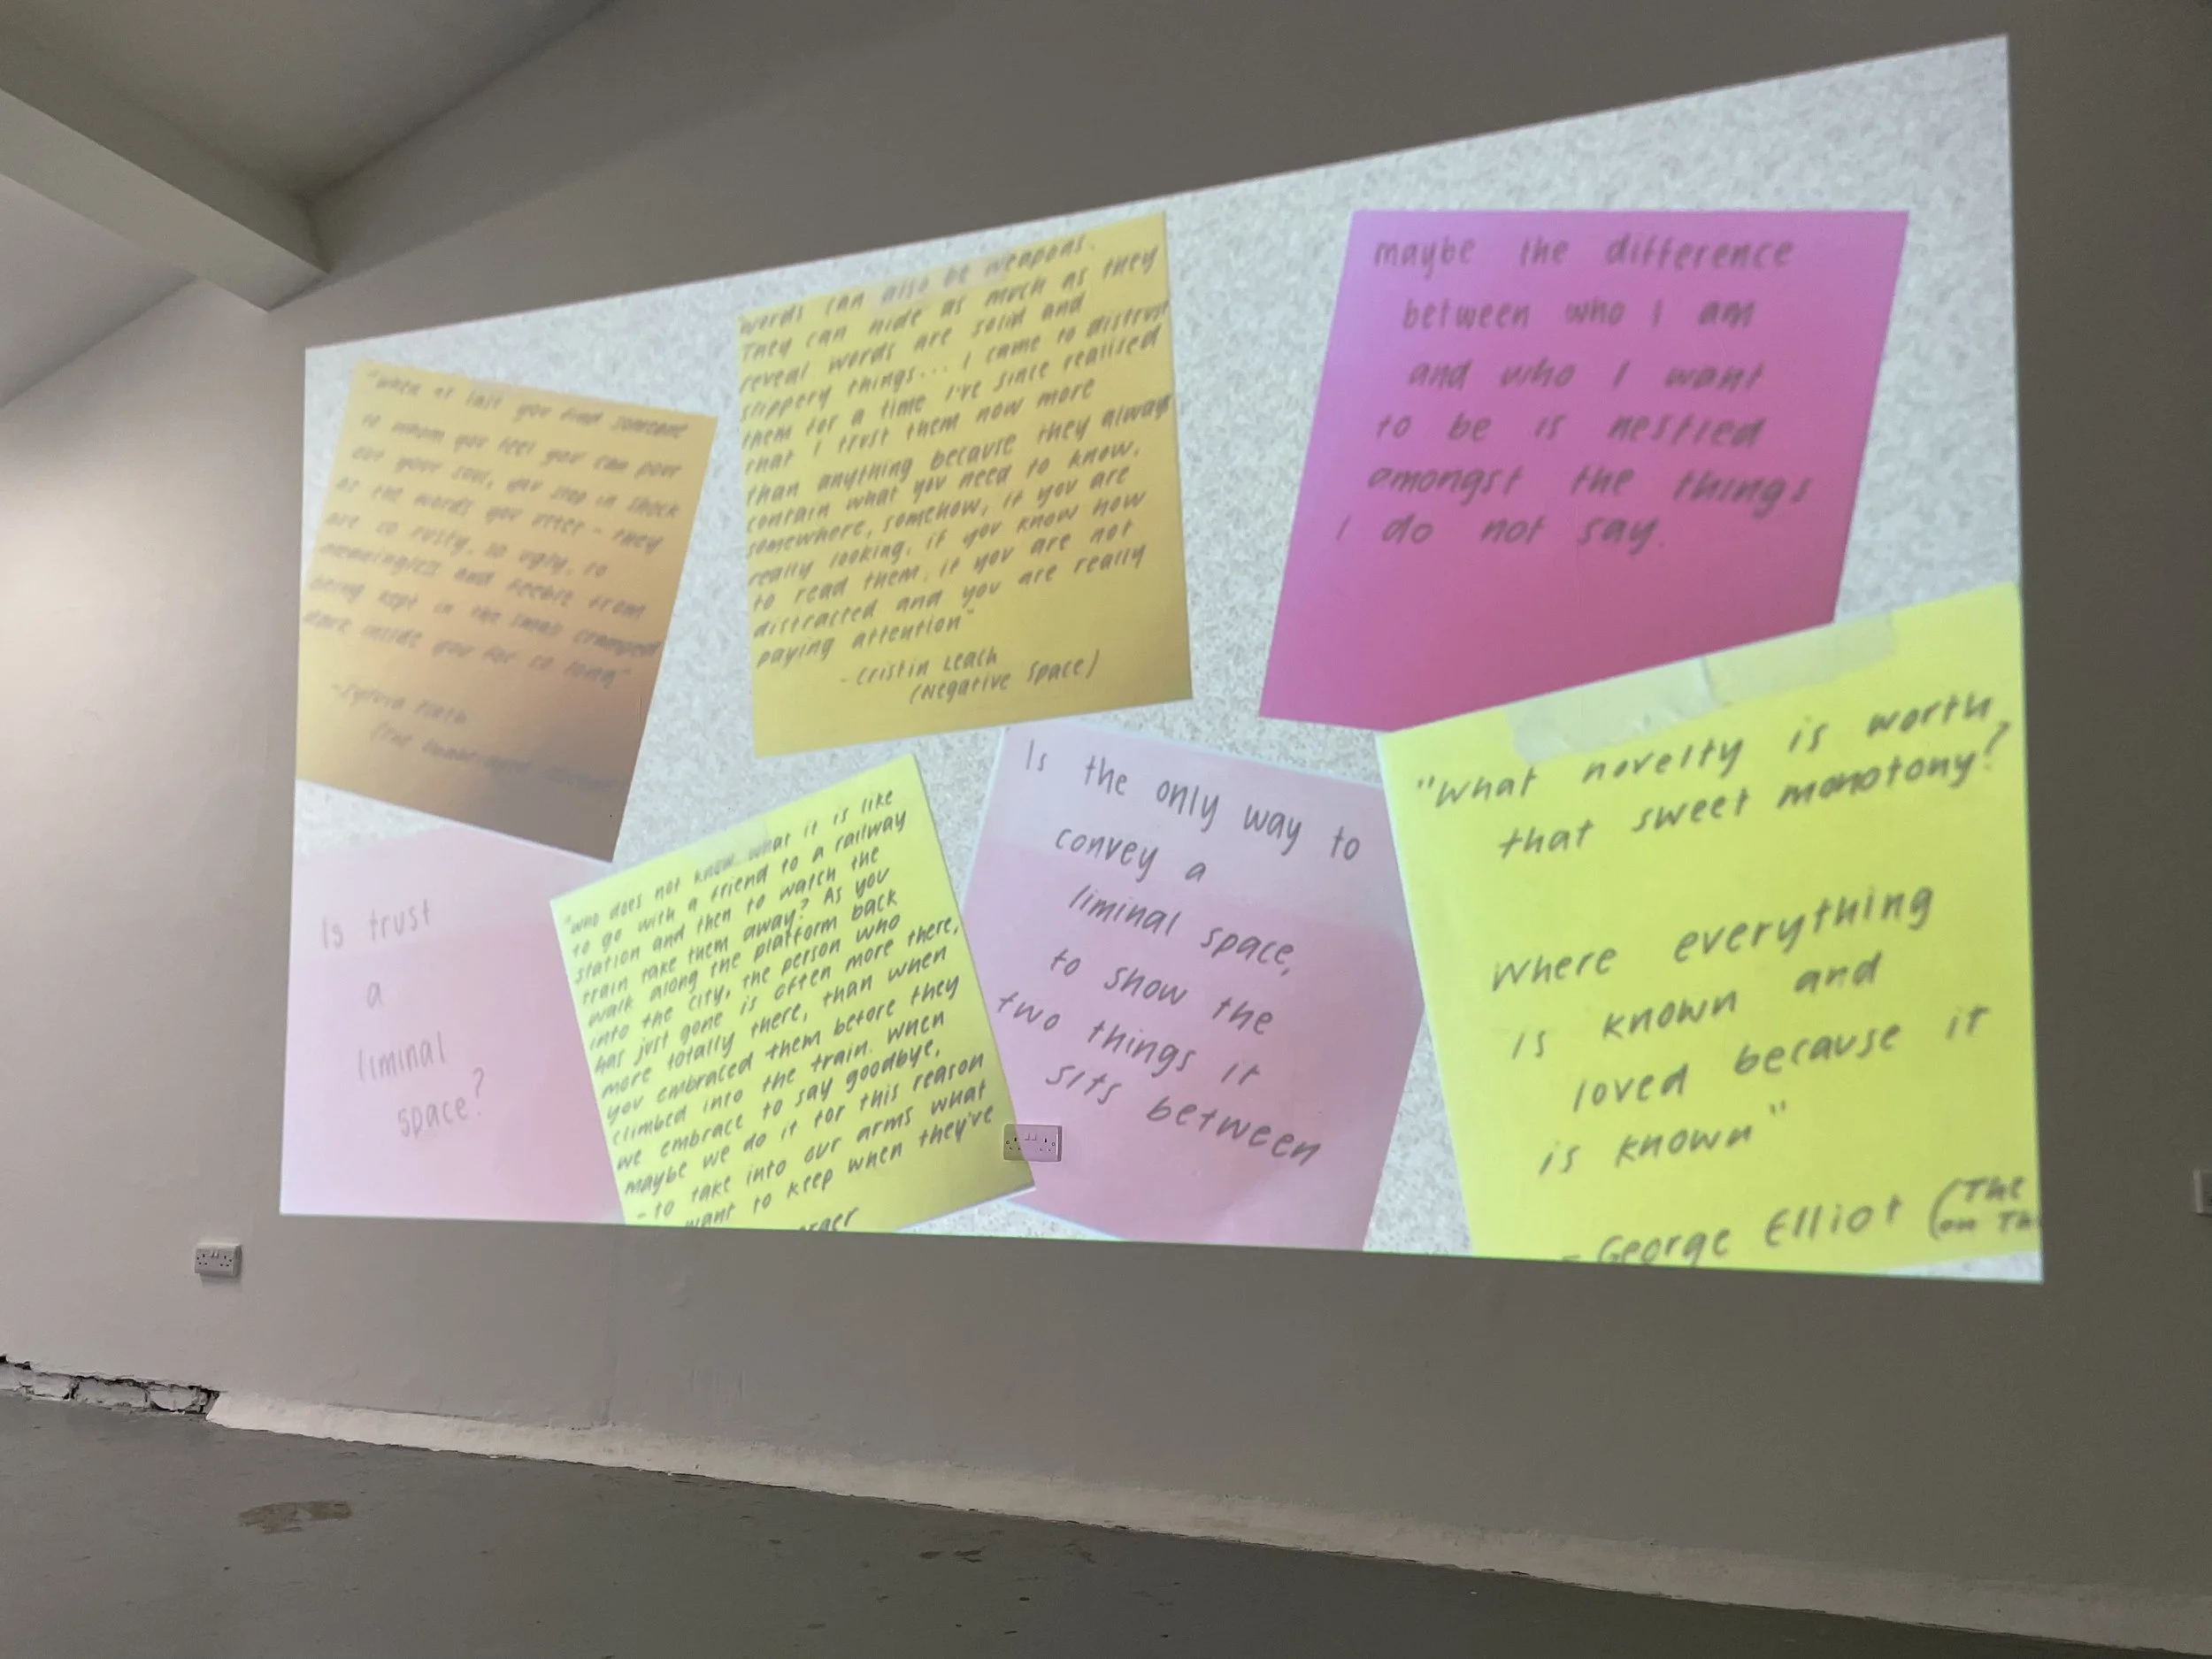 "when at last you find someone
to whom you feel you can pour
out your soul, you stop in shock
at the words you utter - they
are so rusty, so ugly, so
meaningless and feeble from
being kept in the small cramped
dark inside you for so long"
- Sylvia Plath
words can also be weapons.
They can hide as much as they
reveal words are solid and
slippery things... I came to distrust
them for a time I've since realised
that I trust them now more
than anything because they always
contain what you need to know.
somewhere, somehow, if you are
really looking, if you know how
to read them, if you are not
distracted and you are really
paying attention"
- Cristin Leach
(Negative Space)
maybe the difference
between who I am
and who I want
to be is nestled
amongst the things
I do not say.
Is trust
a
liminal
space?
"who does not know what it is like
to go with a friend to a railway
station and then to watch the
train take them away? As you
walk along the platform back
into the city, the person who
has just gone is often more there,
more totally there, than when
you embraced them before they
climbed into the train. when
we embrace to say goodbye,
maybe we do it for this reason
- to take into our arms what
want to keep when they've
Is the only way to
convey a
liminal space,
to show the
two things it
sits between
"What novelty is worth
that sweet monotony?
Where everything
is known and
loved because it
is known"
- George Elliot (The
on Th